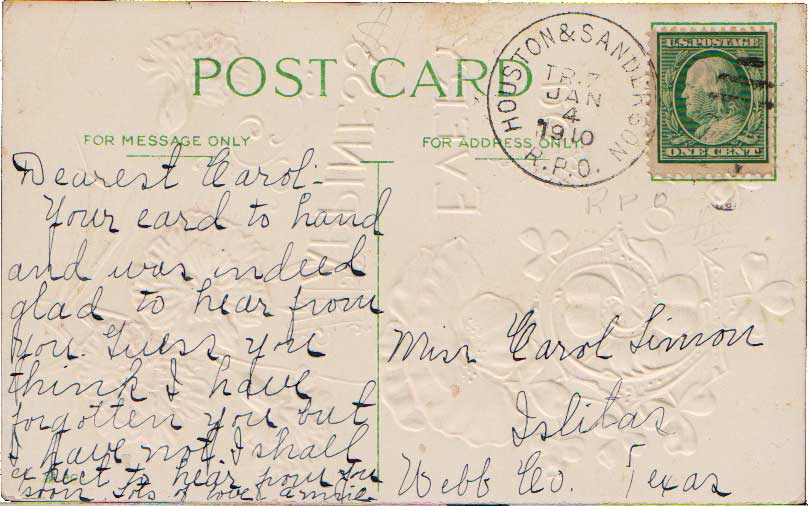 POST CARD
HOUSTON & SANDERSON
TR. 7
JAN
4
1910
R.P.O.
U.S. POSTAGE
ONE CENT
FOR MESSAGE ONLY
FOR ADDRESS ONLY
R P O
Dearest Carol-
Your card to hand
and was indeed
glad to hear from
you. Guess you
think I have
forgotten you but
I have not. I shall
expect to hear from you
soon. Lots of love
Miss Carol Simon
Islitas
Webb Co. Texas